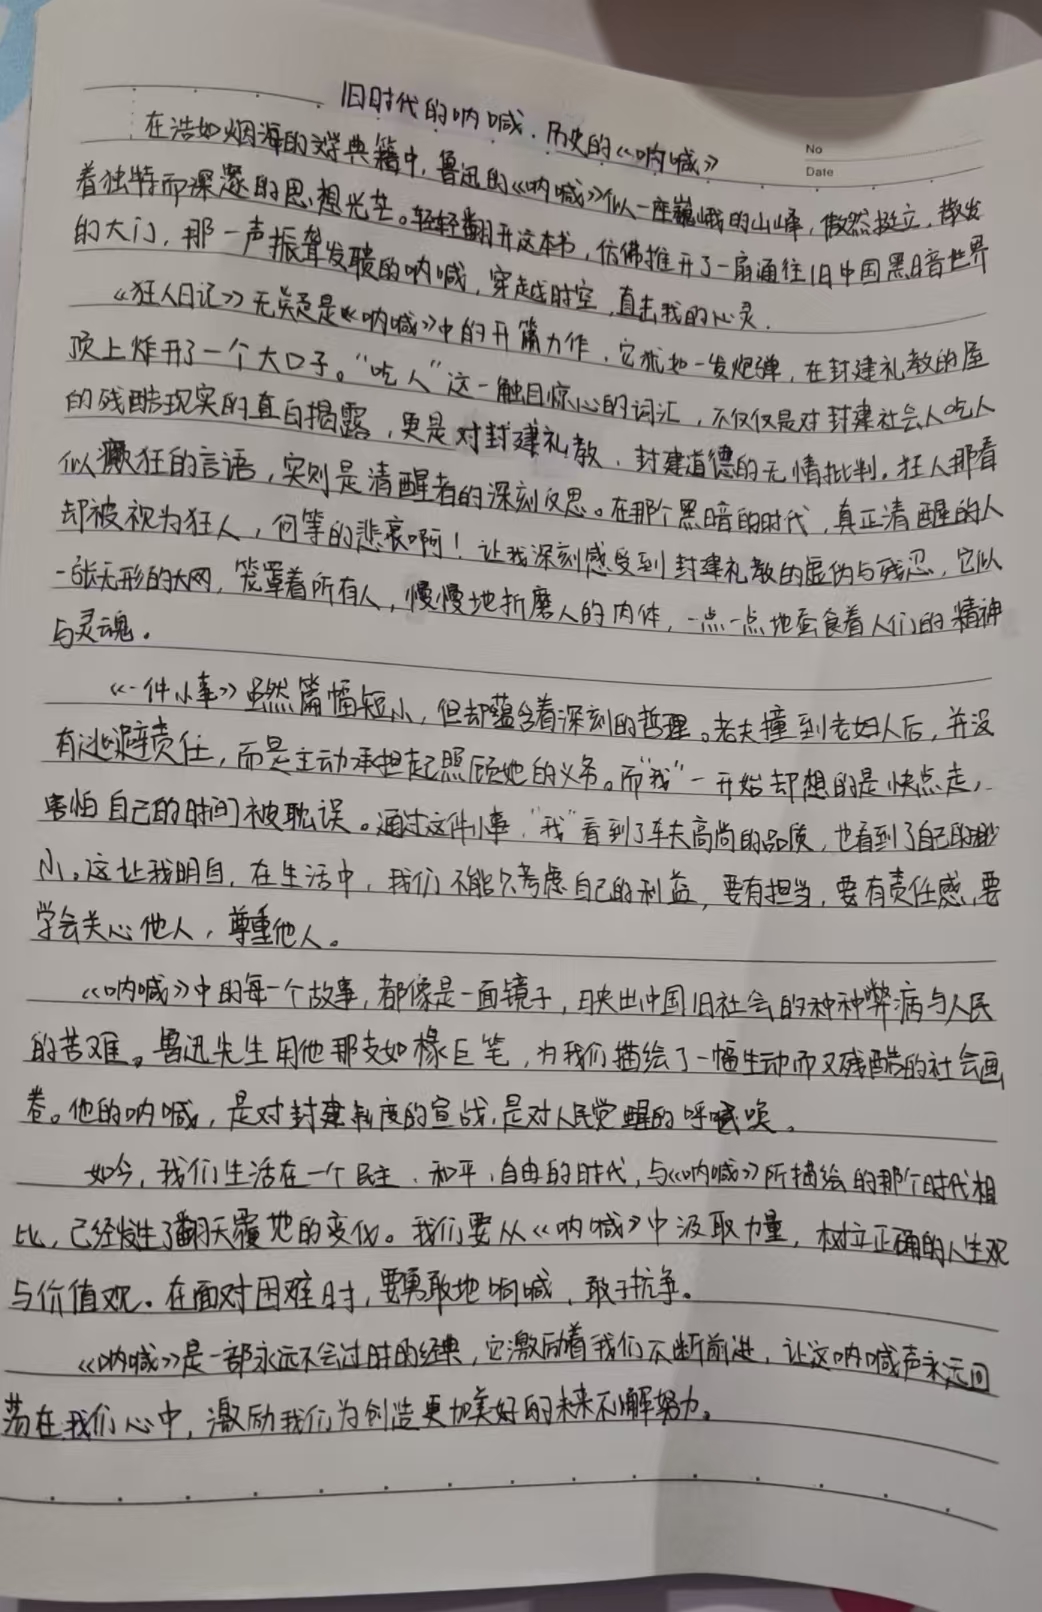 旧时代的呐喊、历史的《呐喊》
No
Date
在浩如烟海的文学典籍中,鲁迅的《呐喊》似一座巍峨的山峰,傲然挺立,散发
着独特而深邃的思想光芒。轻轻翻开这本书,仿佛推开了一扇通往旧中国黑暗世界
的大门,那一声振聋发聩的呐喊,穿越时空,直击我的心灵.
《狂人日记》无疑是《呐喊》中的开篇力作,它犹如一发炮弹,在封建礼教的屋
顶上炸开了一个大口子。“吃人”这一触目惊心的词汇,不仅仅是对封建社会人吃人
的残酷现实的直白揭露,更是对封建礼教、封建道德的无情批判。狂人那看
似癫狂的言语,实则是清醒者的深刻反思。在那个黑暗的时代,真正清醒的人
却被视为狂人,何等的悲哀啊!让我深刻感受到封建礼教的虚伪与残忍,它似
一张无形的大网,笼罩着所有人,慢慢地折磨人的肉体,一点一点地蚕食着人们的精神
与灵魂。
《一件小事》虽然篇幅短小,但却蕴含着深刻的哲理。老夫撞到老妇人后,并没
有逃避责任,而是主动承担起照顾她的义务。而“我”一开始却想的是快点走,
害怕自己的时间被耽误。通过这件小事,“我”看到了车夫高尚的品质,也看到了自己的渺
小。这让我明白,在生活中,我们不能只考虑自己的利益,要有担当,要有责任感,要
学会关心他人,尊重他人。
《呐喊》中的每一个故事,都像是一面镜子,映出中国旧社会的种种弊病与人民
的苦难。鲁迅先生用他那支如椽巨笔,为我们描绘了一幅生动而又残酷的社会画
卷。他的呐喊,是对封建制度的宣战,是对人民觉醒的呼唤。
如今,我们生活在一个民主、和平、自由的时代,与《呐喊》所描绘的那个时代相
比,已经发生了翻天覆地的变化。我们要从《呐喊》中汲取力量,树立正确的人生观
与价值观。在面对困难时,要勇敢地呐喊、敢于抗争。
《呐喊》是一部永远不会过时的经典,它激励着我们不断前进,让这呐喊声永远回
荡在我们心中,激励我们为创造更加美好的未来不懈努力。